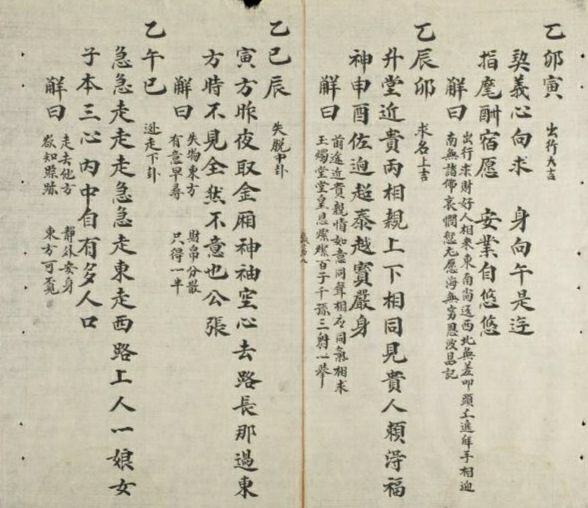 乙卯寅 出行大吉
契義心向求 身向午是迍
指麾酬宿愿 安業自悠悠
解曰 出行求財好人相來東南尚送西北無差叩頭工遠解手相迎
南無諸佛哀憫
乙辰卯 求名上吉
升堂近貴丙相親上下相同見貴人頼淂福
神申酉佐迫超泰越寳嚴身
解曰 前途近貴親情如意同聲相应同氣相求
玉燭堂堂皇恩
乙巳辰 失脱中卦
寅方昨夜取金厢神袖空心去路長那過東
方時不見全然不意也公張
解曰 失物東方 財帛分散
有意早尋 只得一半
乙午巳 逃走下卦
急急走走走走急急走東走西路上人一娘女
子本三心内中自有多人口
解曰 走去他方 靜外安身
欲知踪跡 東方可覔